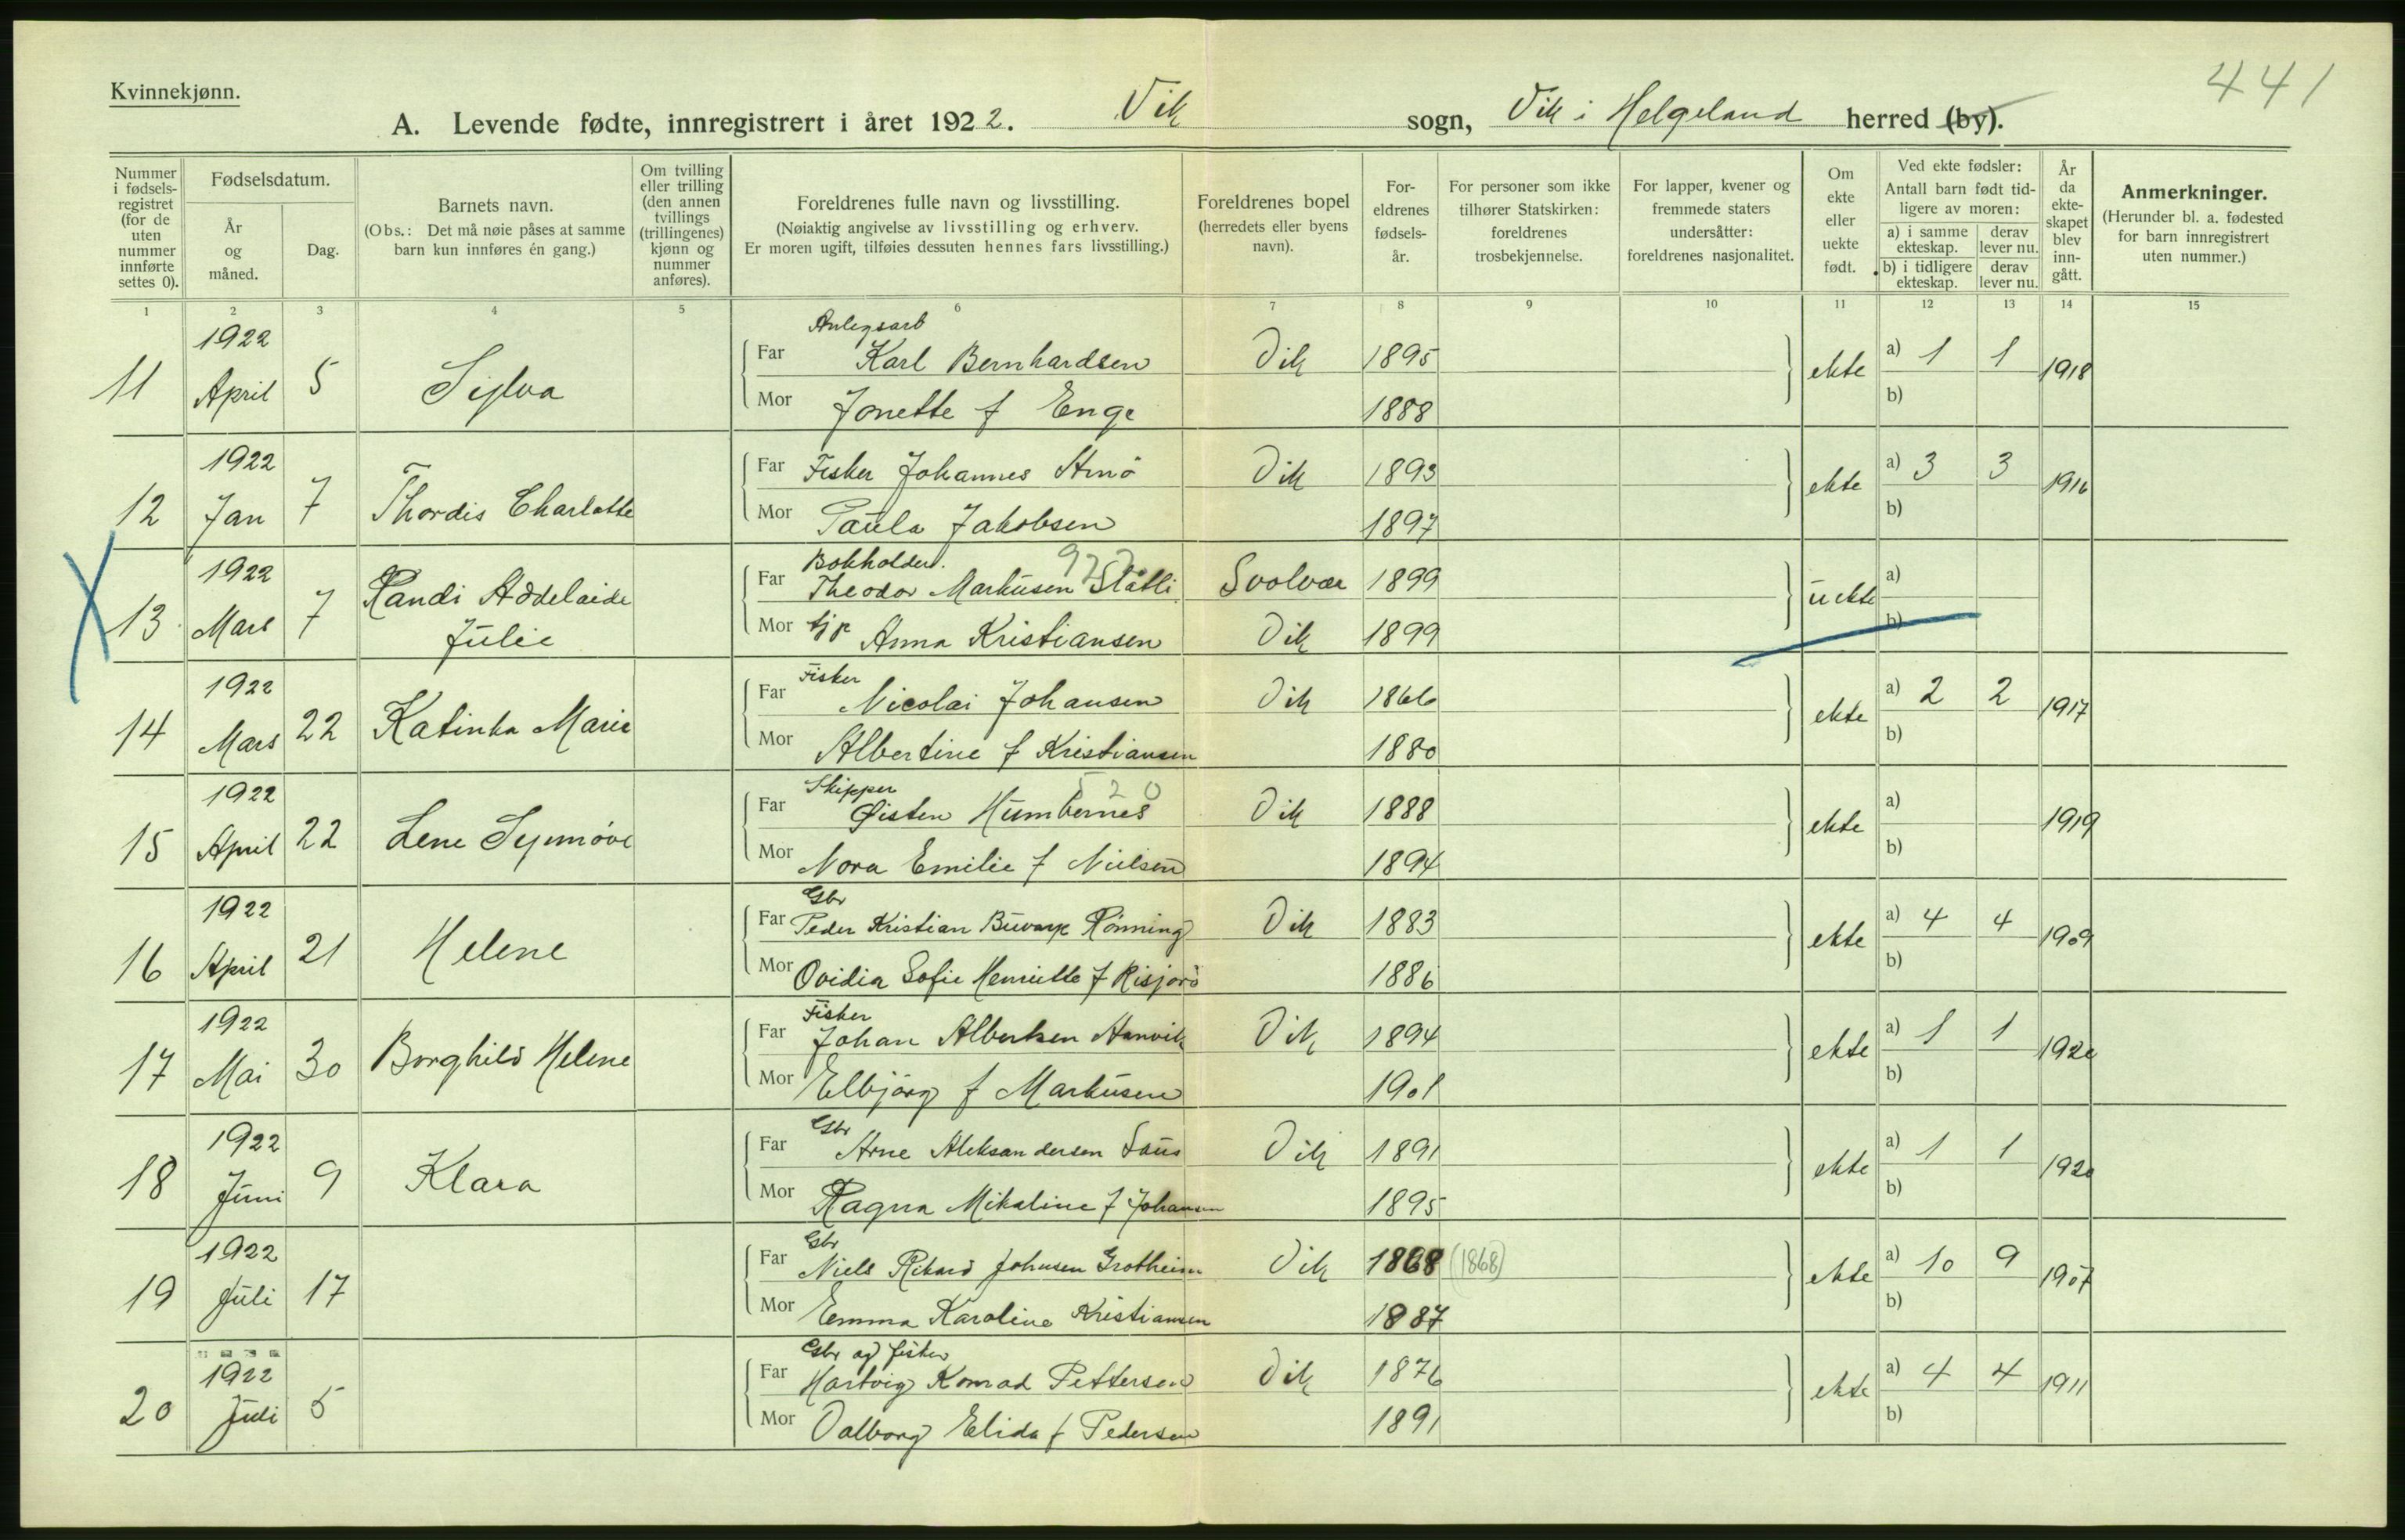 Kvinnekjønn.
441
A. Levende fødte, innregistrert i året 1922. Vik sogn, Vik i Helgeland herred (by).
Nummer i fødsels-registret (for de uten nummer innførte settes 0).
Fødselsdatum.
År og måned.
Dag.
Barnets navn.
(Obs.: Det må nøie påses at samme barn kun innføres én gang.)
Om tvilling eller trilling (den annen tvillings (trillingenes) kjønn og nummer anføres).
Foreldrenes fulle navn og livsstilling.
(Nøiaktig angivelse av livsstilling og erhverv.
Er moren ugift, tilføies dessuten hennes fars livsstilling.)
Foreldrenes bopel (herredets eller byens navn).
For-eldrenes fødsels-år.
For personer som ikke tilhører Statskirken: foreldrenes trosbekjennelse.
For lapper, kvener og fremmede staters undersåtter: foreldrenes nasjonalitet.
Om ekte eller uekte født.
Ved ekte fødsler:
Antall barn født tid-ligere av moren:
a) i samme ekteskap. derav lever nu.
b) i tidligere ekteskap. derav lever nu.
År da ekte-skapet blev inn-gått.
Anmerkninger.
(Herunder bl. a. fødested for barn innregistrert uten nummer.)
1 2 3 4 5 6 7 8 9 10 11 12 13 14 15
11 1922 April 5 Sylva
Anlegsarb
Far Karl Bernhardsen Vik 1895 ekte a) 1 1 1918
Mor Jonette f Enge 1888 b)
12 1922 Jan 7 Thordis Charlotte
Far Fisker Johannes Amø Vik 1893 ekte a) 3 3 1916
Mor Paula Jakobsen 1897 b)
13 1922 Mars 7 Randi Addelaide Julie
Bokholder. 927
Far Theodor Markusen Slåtli Svolvær 1899 uekte a)
Mor tjp Anna Kristiansen Vik 1899 b)
14 1922 Mars 22 Katinka Marie
Fisker
Far Nicolai Johansen Vik 1866 ekte a) 2 2 1917
Mor Albertine f Kristiansen 1880 b)
15 1922 April 22 Lene Synnøve
Skipper 520
Far Øisten Humbernes Vik 1888 ekte a) 1919
Mor Nora Emilie f Nielsen 1894 b)
16 1922 April 21 Helene
Gbr
Far Peder Kristian Buvarp Rønning Vik 1883 ekte a) 4 4 1909
Mor Ovidia Sofie Henriette f 1886 b)
17 1922 Mai 30 Borghild Helene
Fisker
Far Johan Albertsen Vik 1894 ekte a) 1 1 1920
Mor Elbjørg f Markusen 1901 b)
18 1922 Juni 9 Klara
Gbr
Far Arne Aleksandersen Saus Vik 1891 ekte a) 1 1 1920
Mor Ragna Mikaline f Johansen 1895 b)
19 1922 Juli 17
Gbr
Far Niels Rikard Johnsen Grotheim Vik 1868 (1868) ekte a) 10 9 1907
Mor Emma Karoline Kristiansen 1887 b)
20 1922 Juli 5
Gbr og fisker
Far Hartvig Konrad Pettersen Vik 1876 ekte a) 4 4 1911
Mor Valborg Elida f Pedersen 1891 b)